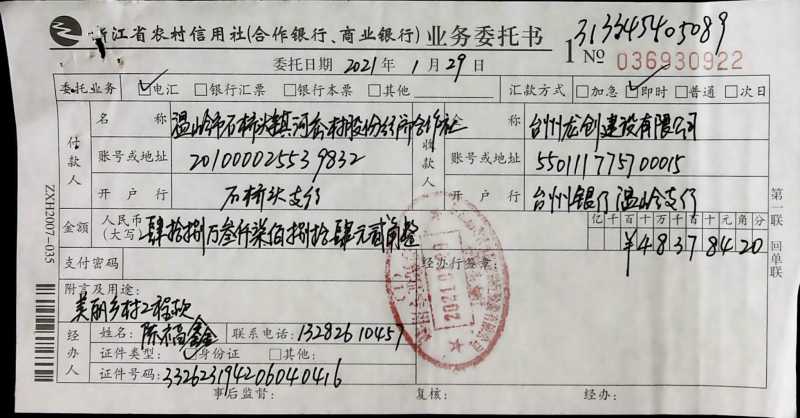 浙江省农村信用社(合作银行、商业银行)业务委托书
313345405089
1 № 036930922
委托日期 2021年 1月29日
委托业务 ☑电汇 □银行汇票 □银行本票 □其他 汇款方式 □加急 ☑即时 □普通 □次日
付款人 名称 温岭市石桥头镇 村股份经济合作社 收款人 全称 台州龙创建设有限公司
账号或地址 201000025539832 账号或地址 550111775700015
开户行 石桥头支行 开户行 台州银行温岭支行
金额 人民币(大写) 肆拾捌万叁仟柒佰捌拾肆元贰角整 亿千百十万千百十元角分
¥48378420
支付密码 经办行签章:
附言及用途:
美丽乡村工程款
经办人 姓名: 陈福鑫 联系电话: 13282610457
证件类型: ☑身份证 □其他:
证件号码: 332623194206040416
事后监督: 复核: 经办:
ZXH2007-035
第一联 回单联